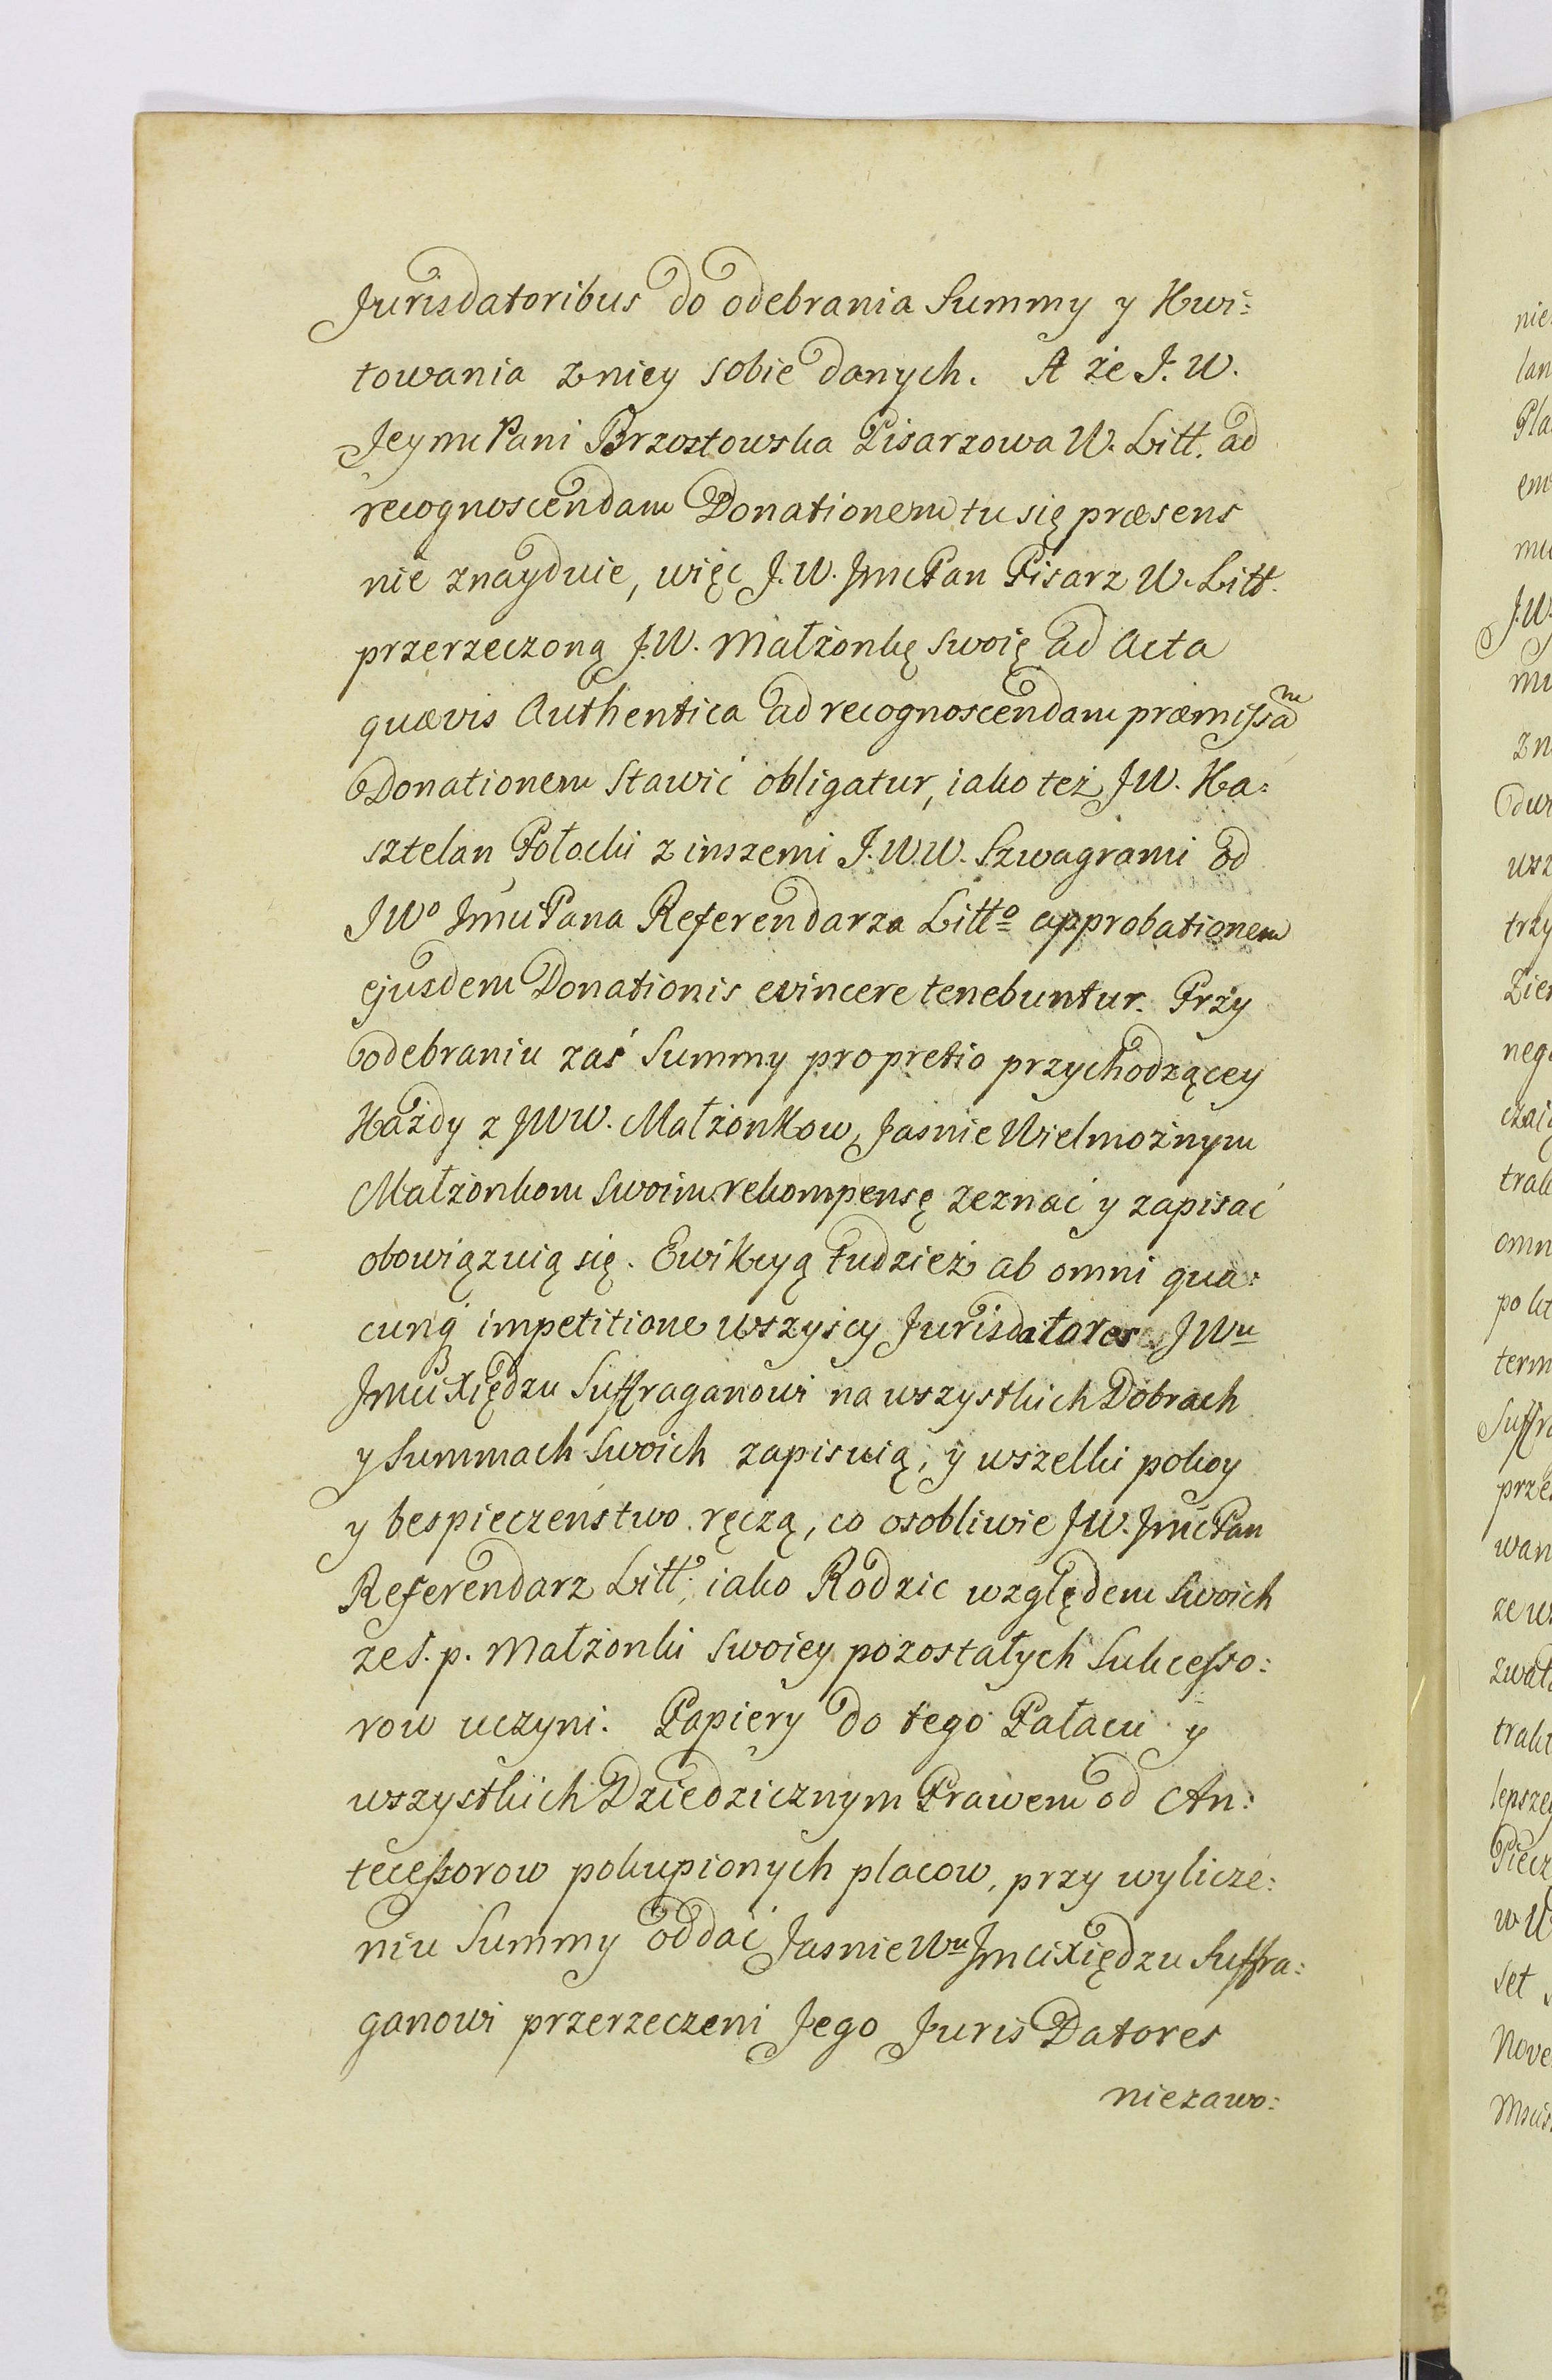 Jurisdatoribus do odebrania Summy y Kwi:
towania z niey sobie danych. A że J. W.
Jeymć Pani Brzostowska Pisarzowa W. Litt. ad
recognoscendam Donationem tu się præsens
nie znayduie, więc J. W. Jmć Pan Pisarz W. Litt.
przerzeczoną J. W. Małżonkę swoię ad Acta
quævis Authentica ad recognoscendam præmissam
Donationem stawić obligatur, iako też J W. Ka:
sztelan Połocki z inszemi J. W. W. Szwagrami od
J Wo Jmci Pana Referendarza Litto approbationem
ejusdem Donationis evincere tenebuntur. Przy
odebraniu zaś Summy pro pretio przychodzącey
Każdy z J W W. Małżonkow, Jasnie Wielmożnym
Małżonkom swoim rekompensę zeznać y zapisać
obowiązuią się. Ewikcyą tudzież ab omni qua:
cunq impetitione wszyscy Jurisdatores J Wu
Jmci Xiędzu Suffraganowi na wszystkich Dobrach
y Summach swoich zapisuią, y wszelki pokoy
y bespieczeństwo ręczą, co osobliwie J W. Jmć Pan
Referendarz Litt. iako Rodzic względem swoich
ze s. p. Małżonki swoiey pozostałych Sukcesso:
row uczyni. Papiery do tego Pałacu y
wszystkich Dziedzicznym Prawem od An:
tecessorow pokupionych placow, przy wylicze:
niu Summy oddać Jasnie Wu Jmci Xiędzu Suffra:
ganowi przerzeczeni Jego Juris Datores
niezawo: